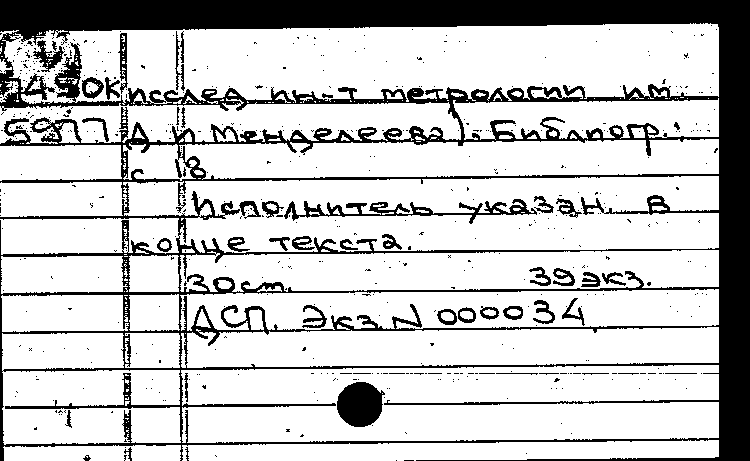 74-5ОК исслед ин-т метрологии им.
5977 Д. И Менделеева). Библиогр.:
с. 18.
Исполнитель указан в
конце текста.
30 см. 39 экз.
ДСП. Экз N 000034